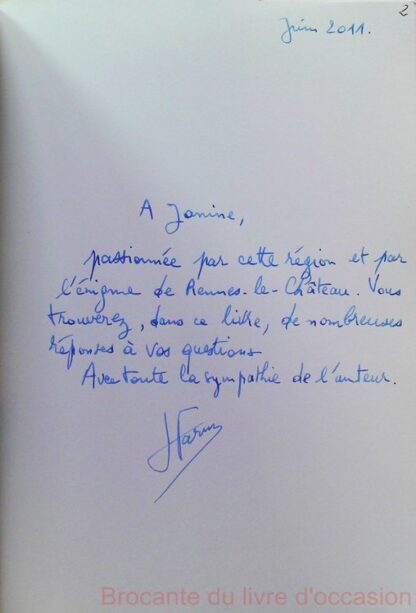 2
Juin 2011.
A Janine,
passionnée par cette région et par
l'énigme de Rennes-le-Château. Vous
trouverez, dans ce livre, de nombreuses
réponses à vos questions
Avec toute la sympathie de l'auteur.
Brocante du livre d'occasion